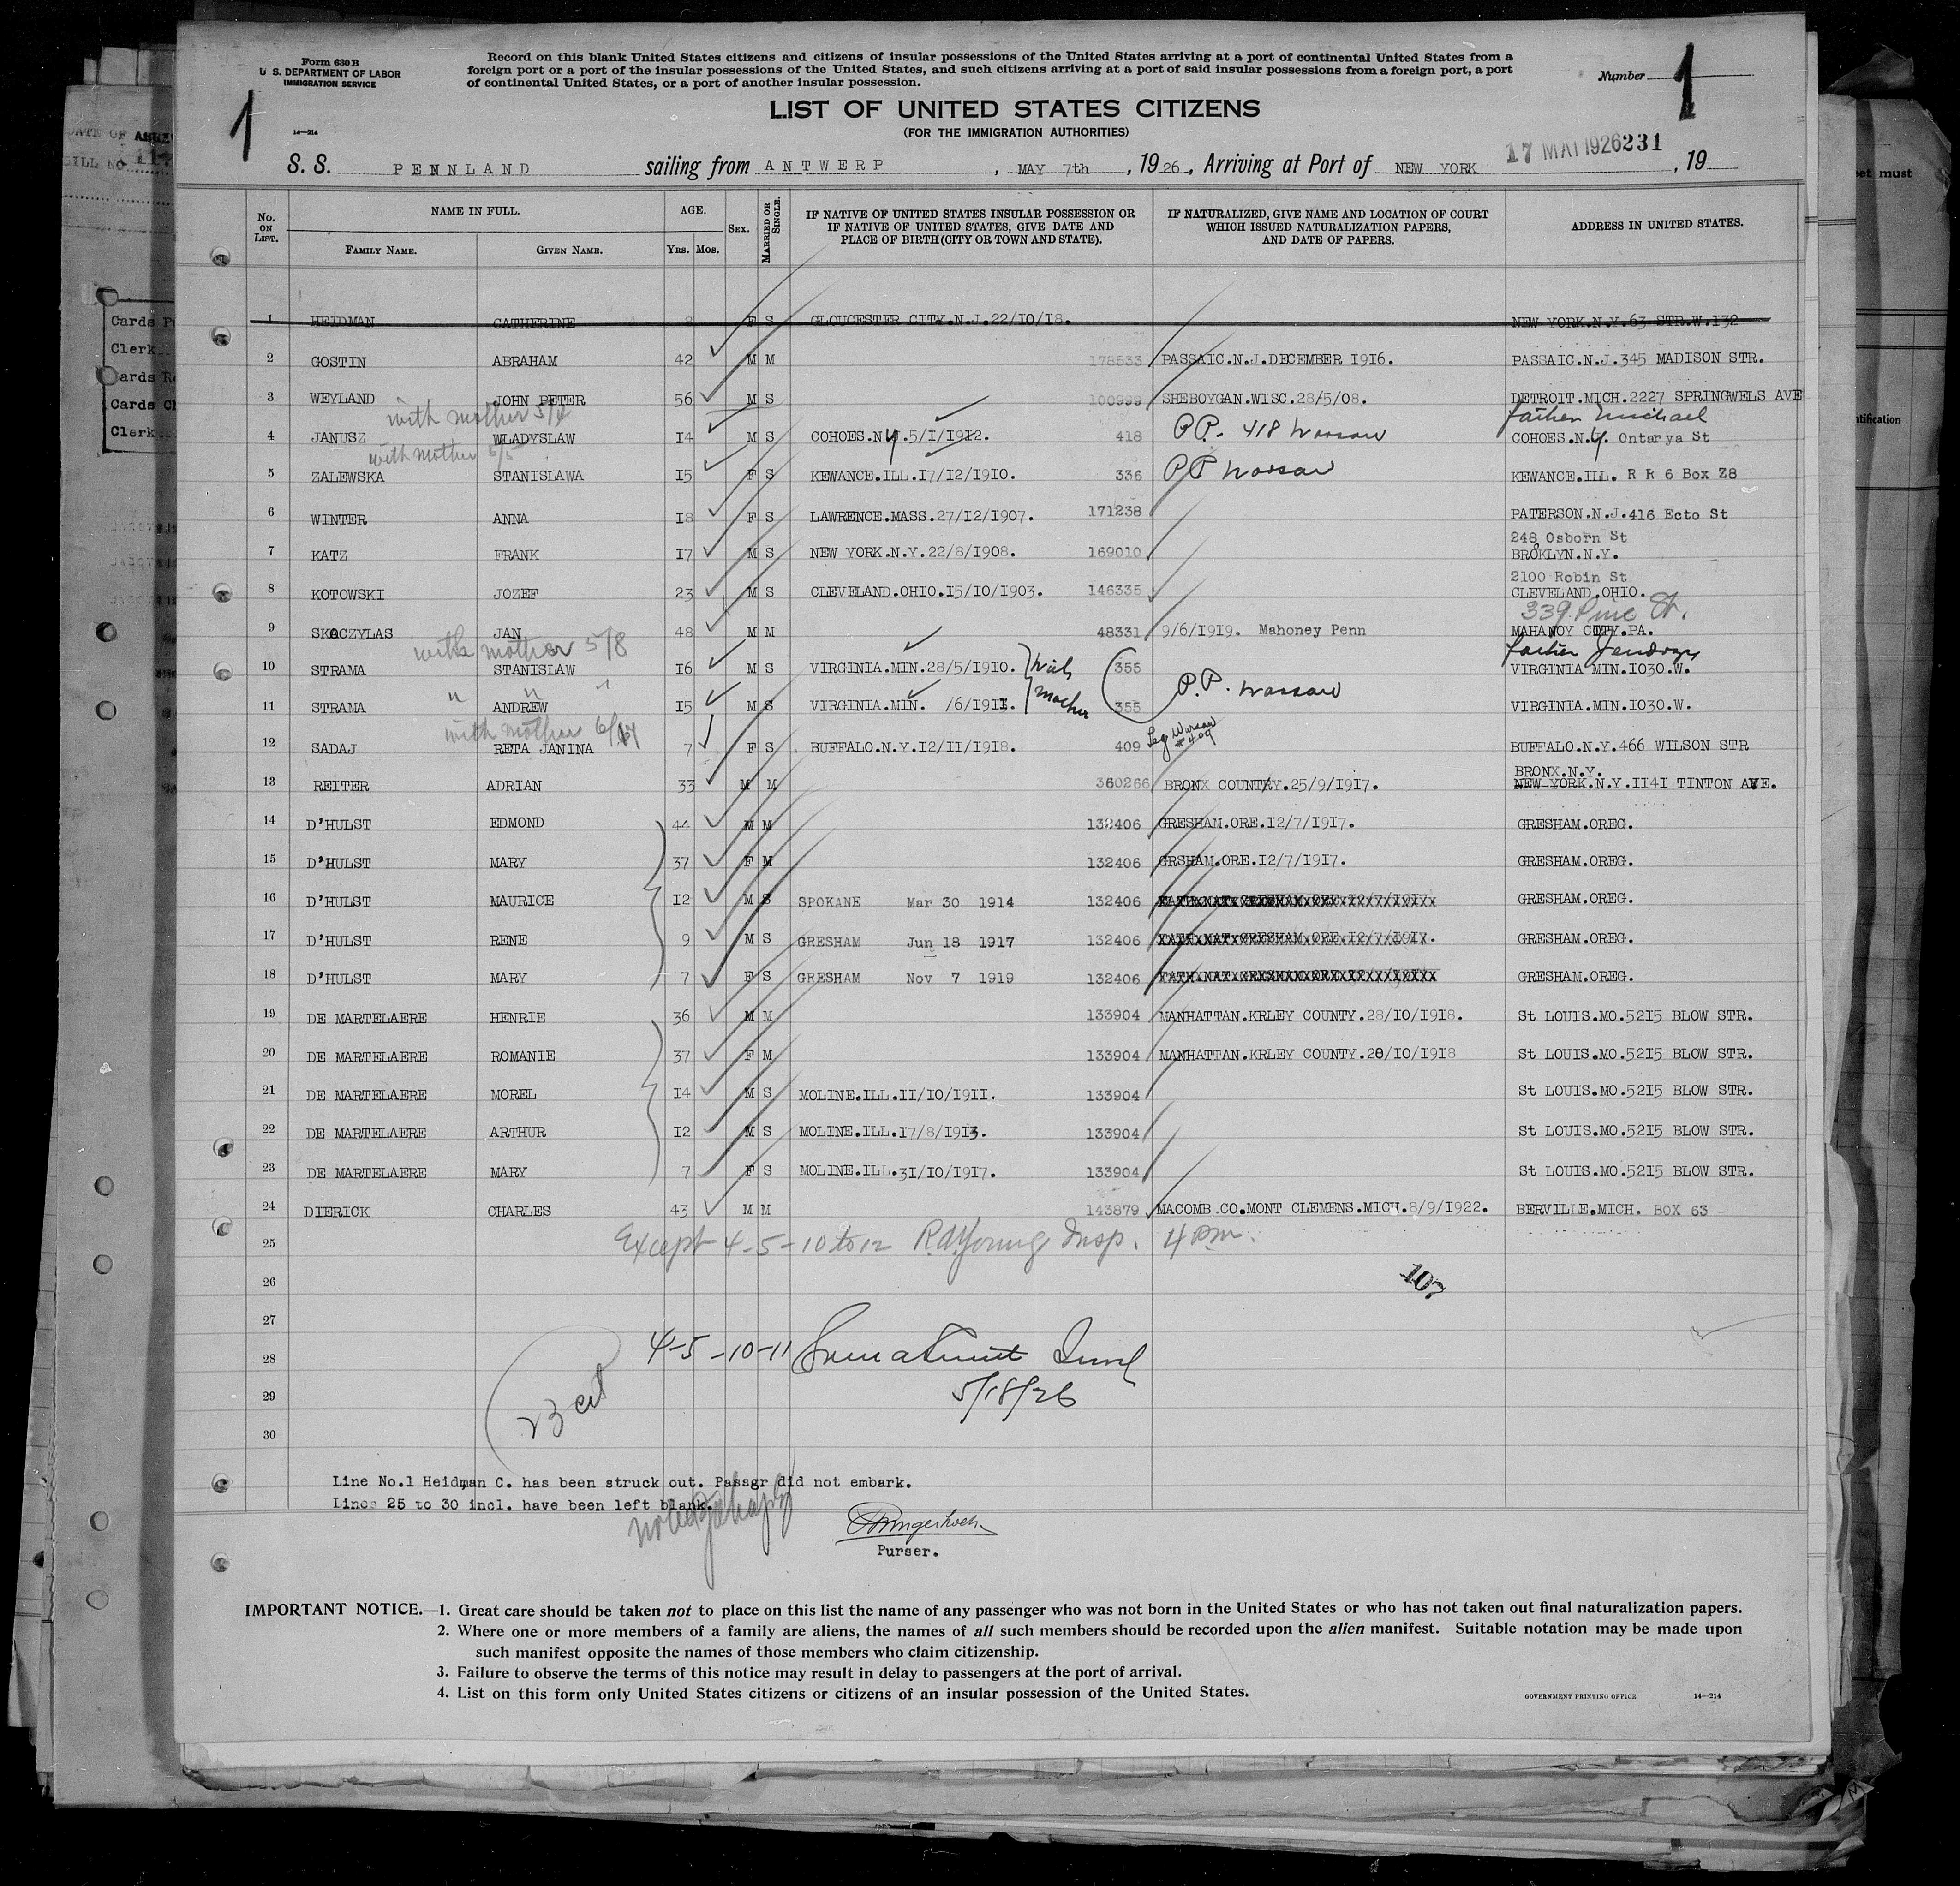 Form 630 B
U. S. DEPARTMENT OF LABOR
IMMIGRATION SERVICE
Record on this blank United States citizens and citizens of insular possessions of the United States arriving at a port of continental United States from a
foreign port or a port of the insular possessions of the United States, and such citizens arriving at a port of said insular possessions from a foreign port, a port
of continental United States, or a port of another insular possession.
Number 1
1
14—214
LIST OF UNITED STATES CITIZENS
(FOR THE IMMIGRATION AUTHORITIES)
17 MAI 1926 231
S. S. PENNLAND sailing from ANTWERP, MAY 7th, 1926, Arriving at Port of NEW YORK, 19
No. ON LIST. NAME IN FULL. AGE. SEX. MARRIED OR SINGLE. IF NATIVE OF UNITED STATES INSULAR POSSESSION OR IF NATIVE OF UNITED STATES, GIVE DATE AND PLACE OF BIRTH (CITY OR TOWN AND STATE). IF NATURALIZED, GIVE NAME AND LOCATION OF COURT WHICH ISSUED NATURALIZATION PAPERS, AND DATE OF PAPERS. ADDRESS IN UNITED STATES.
FAMILY NAME. GIVEN NAME. YRS. MOS.
1 HEIDMAN CATHERINE 8 F S GLOUCESTER CITY.N.J.22/10/18. NEW YORK.N.Y.63 STR.W.132
2 GOSTIN ABRAHAM 42 M M 178533 PASSAIC.N.J.DECEMBER 1916. PASSAIC.N.J.345 MADISON STR.
3 WEYLAND JOHN PETER 56 M S 100999 SHEBOYGAN.WISC.28/5/08. DETROIT.MICH.2227 SPRINGWELS AVE
with mother 5/4 father Michael
4 JANUSZ WLADYSLAW 14 M S COHOES.N.Y.5/1/1912. 418 P.P. 418 Warsaw COHOES.N.Y. Ontarya St
with mother 5/5
5 ZALEWSKA STANISLAWA 15 F S KEWANCE.ILL.17/12/1910. 336 P P Warsaw KEWANCE.ILL. R R 6 Box Z8
6 WINTER ANNA 18 F S LAWRENCE.MASS.27/12/1907. 171238 PATERSON.N.J.416 Ecto St
248 Osborn St
7 KATZ FRANK 17 M S NEW YORK.N.Y.22/8/1908. 169010 BROKLYN.N.Y.
2100 Robin St
8 KOTOWSKI JOZEF 23 M S CLEVELAND.OHIO.15/10/1903. 146335 CLEVELAND.OHIO.
339 Pine St.
9 SKOCZYLAS JAN 48 M M 48331 9/6/1919. Mahoney Penn MAHANOY CITY.PA.
with mother 5/8 father
10 STRAMA STANISLAW 16 M S VIRGINIA.MIN.28/5/1910. with mother 355 P.P. Warsaw VIRGINIA.MIN.1030.W.
" " "
11 STRAMA ANDREW 15 M S VIRGINIA.MIN. /6/1911. 355 VIRGINIA.MIN.1030.W.
with mother 6/14 Warsaw #409
12 SADAJ RETA JANINA 7 F S BUFFALO.N.Y.12/11/1918. 409 BUFFALO.N.Y.466 WILSON STR
BRONX.N.Y.
13 REITER ADRIAN 33 M M 360266 BRONX COUNTY.25/9/1917. NEW YORK.N.Y.1141 TINTON AVE.
14 D'HULST EDMOND 44 M M 132406 GRESHAM.ORE.12/7/1917. GRESHAM.OREG.
15 D'HULST MARY 37 F M 132406 GRSHAM.ORE.12/7/1917. GRESHAM.OREG.
16 D'HULST MAURICE 12 M S SPOKANE Mar 30 1914 132406 GRESHAM.OREG.
17 D'HULST RENE 9 M S GRESHAM Jun 18 1917 132406 GRESHAM.OREG.
18 D'HULST MARY 7 F S GRESHAM Nov 7 1919 132406 GRESHAM.OREG.
19 DE MARTELAERE HENRIE 36 M M 133904 MANHATTAN.KRLEY COUNTY.28/10/1918. St LOUIS.MO.5215 BLOW STR.
20 DE MARTELAERE ROMANIE 37 F M 133904 MANHATTAN.KRLEY COUNTY.28/10/1918 St LOUIS.MO.5215 BLOW STR.
21 DE MARTELAERE MOREL 14 M S MOLINE.ILL.11/10/1911. 133904 St LOUIS.MO.5215 BLOW STR.
22 DE MARTELAERE ARTHUR 12 M S MOLINE.ILL.17/8/1913. 133904 St LOUIS.MO.5215 BLOW STR.
23 DE MARTELAERE MARY 7 F S MOLINE.ILL.31/10/1917. 133904 St LOUIS.MO.5215 BLOW STR.
24 DIERICK CHARLES 43 M M 143879 MACOMB.CO.MONT CLEMENS.MICH.8/9/1922. BERVILLE.MICH. BOX 63
25 Except 4-5-10 to 12 R.A. Young Insp. 4 P.M.
26 107
27
28 4-5-10-11
29 23 cit 5/18/26
30
Line No.1 Heidman C. has been struck out. Passgr did not embark.
Lines 25 to 30 incl. have been left blank.
Purser.
IMPORTANT NOTICE.—1. Great care should be taken not to place on this list the name of any passenger who was not born in the United States or who has not taken out final naturalization papers.
2. Where one or more members of a family are aliens, the names of all such members should be recorded upon the alien manifest. Suitable notation may be made upon
such manifest opposite the names of those members who claim citizenship.
3. Failure to observe the terms of this notice may result in delay to passengers at the port of arrival.
4. List on this form only United States citizens or citizens of an insular possession of the United States.
GOVERNMENT PRINTING OFFICE 14—214